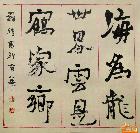 海為龍
世界雲是
鶴家鄉